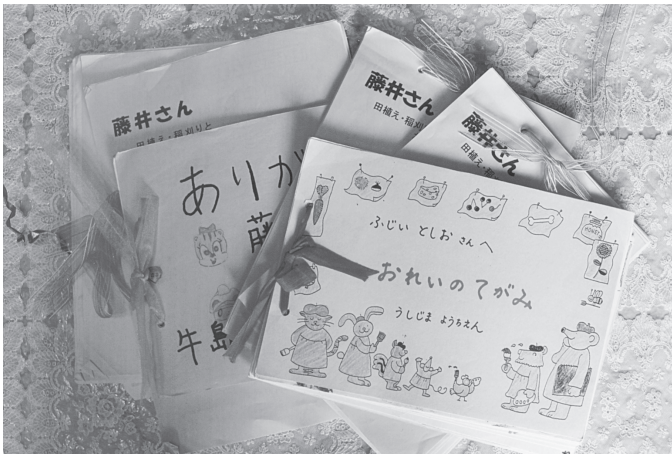 藤井さん
田植え・稲刈りと
ありが
藤
牛島
藤井さん
田植え・稲刈
藤井さん
田植え・
ふじい としお さんへ
おれいのてがみ
うしじま ようちえん
HONEY